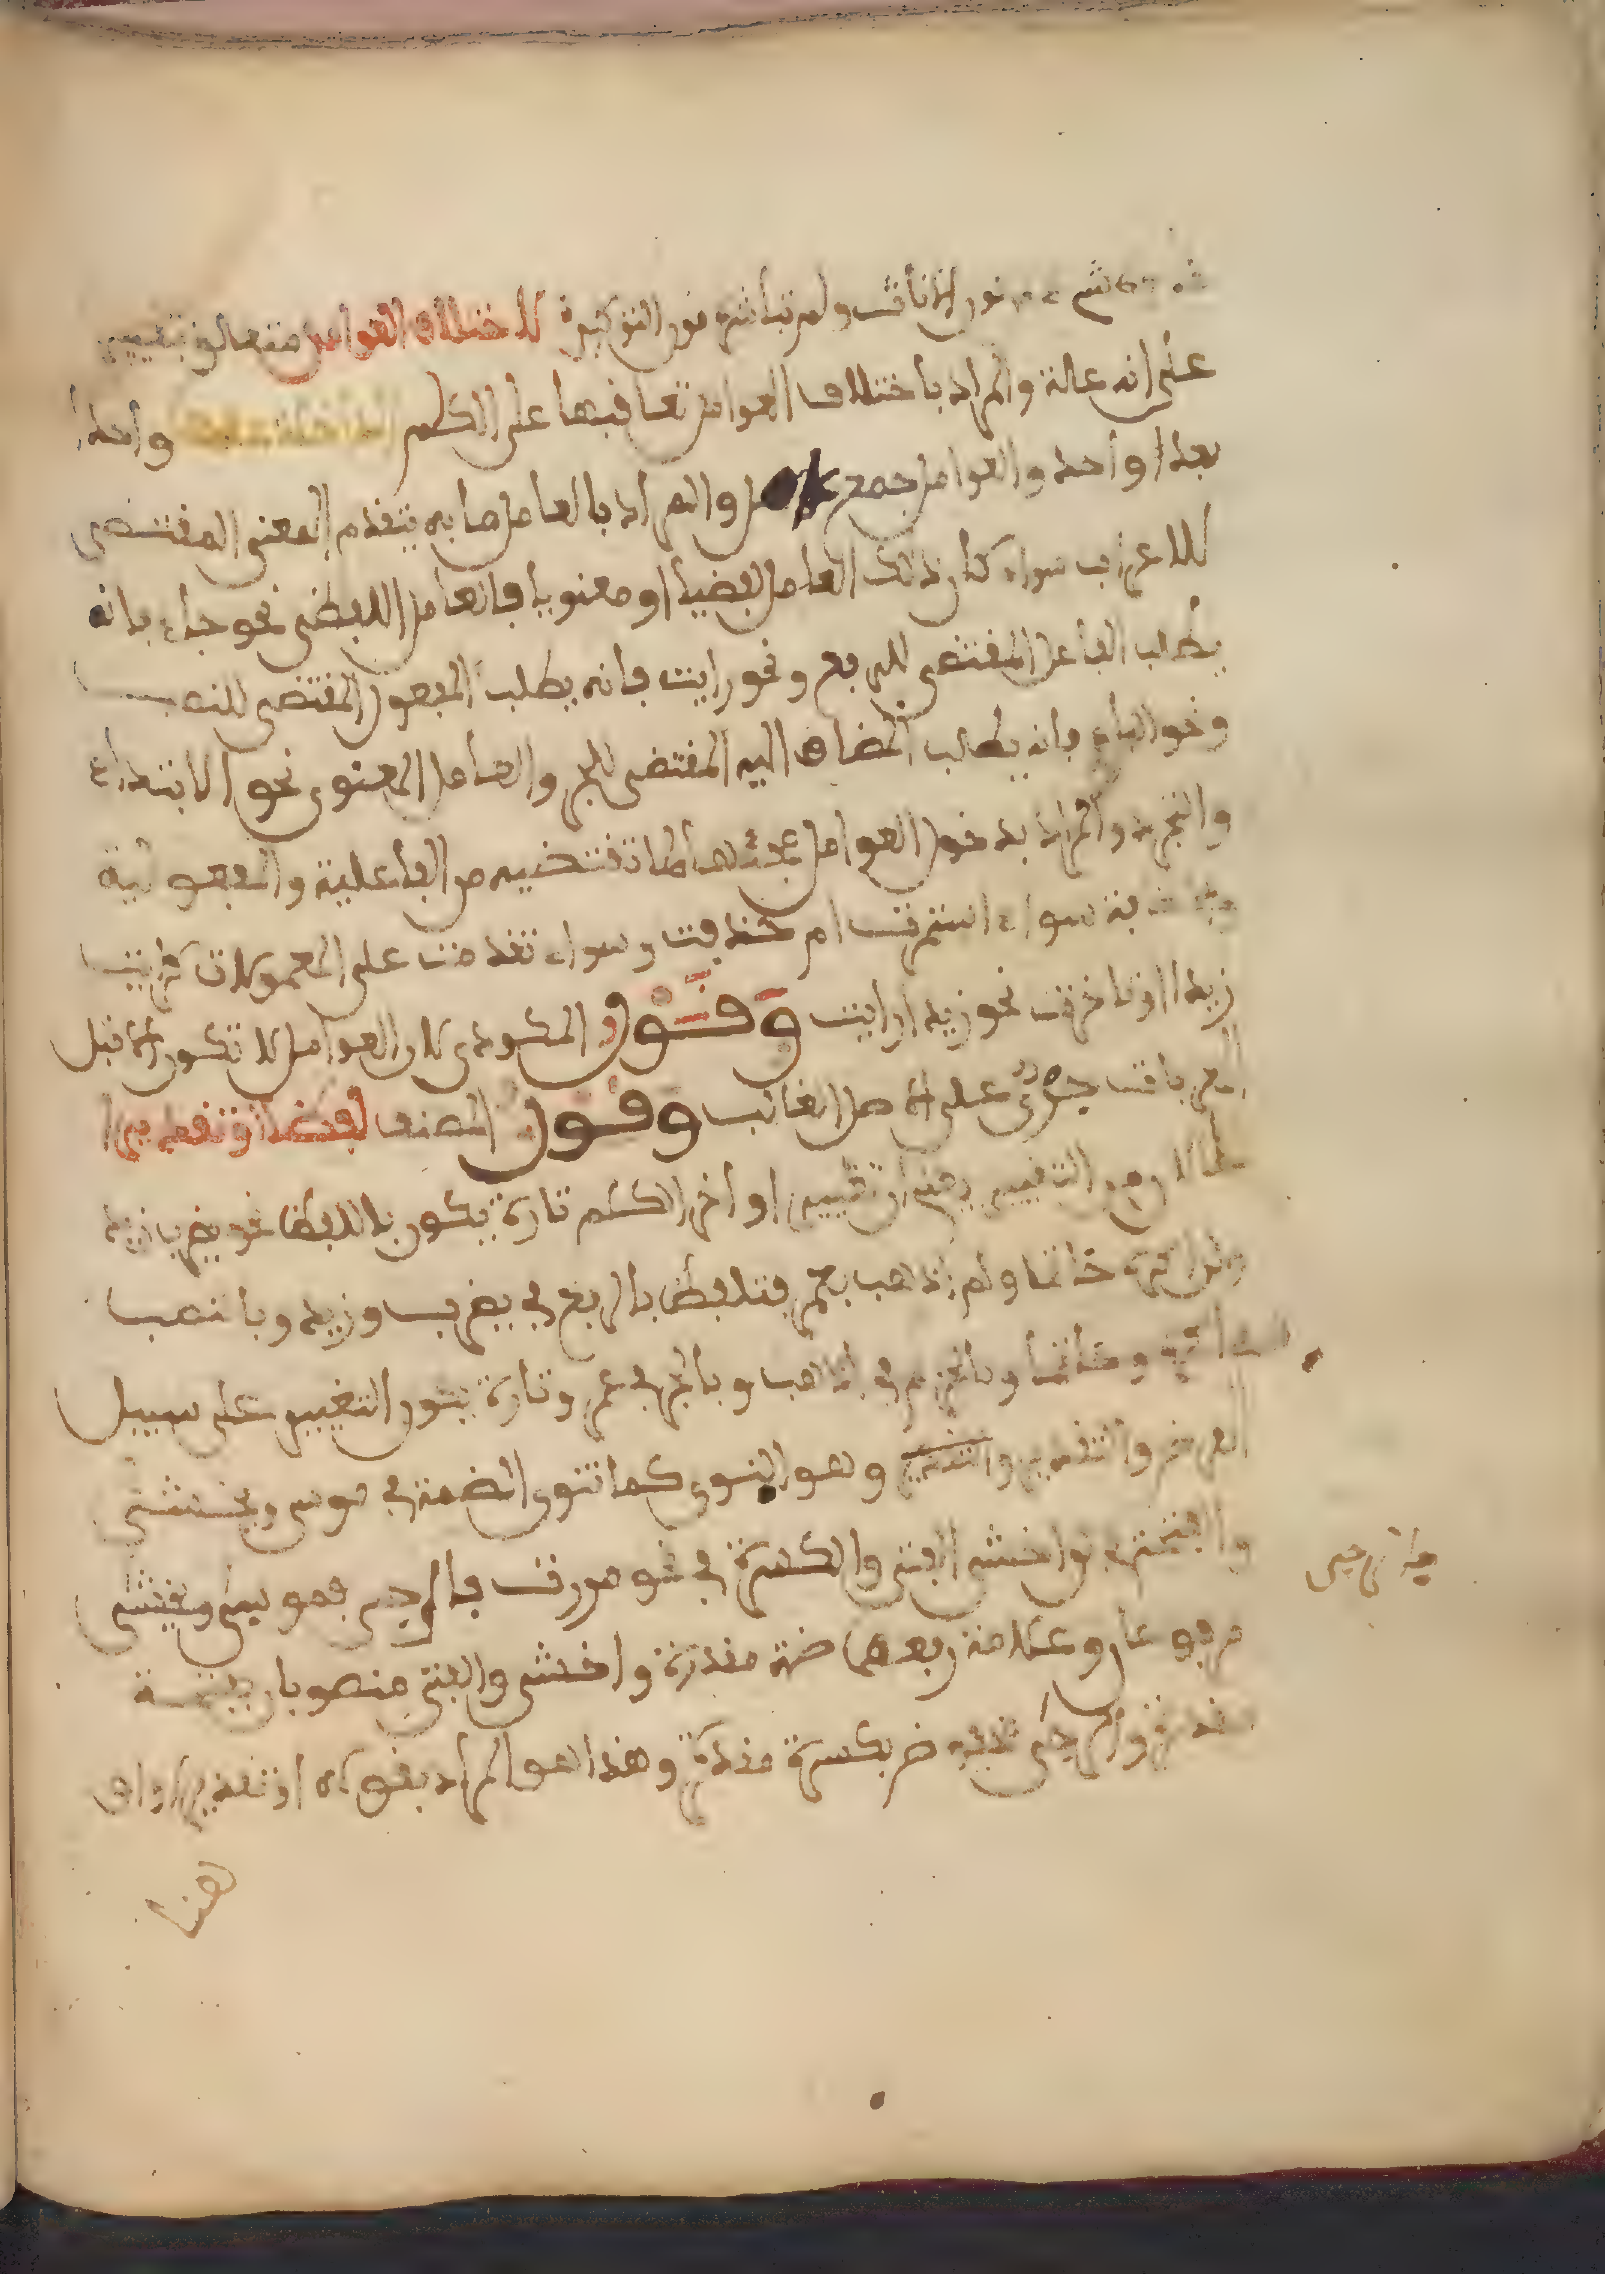 نون الاناث ولم تباشره نون التوكيد لاختلاف العوامل متعلق بتغيير
على انه علة والمراد باختلاف العوامل تعاقبها على الكلم الداخلة عليها واحدا
بعد واحد والعوامل جمع عامل والمراد بالعامل ما به يتقوم المعنى المقتضى
للاعراب سواء كان ذلك العامل لفظيا او معنويا فالعامل اللفظى نحو جاء فانه
يطلب الفاعل المقتضى للرفع ونحو رايت فانه يطلب المفعول المقتضى للنصب
ونحو الباء فانه يطلب المضاف اليه المقتضى للجر والعامل المعنوى نحو الابتداء
والتجرد والمراد بدخول العوامل مجيئها لما تقتضيه من الفاعلية والمفعولية
سواء استمرت ام حذفت وسواء تقدمت على المعمولات كرايت
زيدا او تاخرت نحو زيدا رايت وقول المكودى لان العوامل لا تكون الا قبل
المعربات جرى على الاصل الغالب وقول المصنف لفظا او تقديرا
حالان من التغيير يعنى ان تغيير اواخر الكلم تارة يكون باللفظ نحو يضرب زيد
ولن اكرم حاتما ولم اذهب بعمر فتلفظ بالرفع فى يضرب وزيد وبالنصب
فى اكرم وحاتما وبالجزم فى اذهب وبالجر فى عمر وتارة يكون التغيير على سبيل
الفرض والتقدير والتقدير وهو المنوى كما تنوى الضمة فى موسى ويخشى
والفتحة فى نحو اخشى الفتى والكسرة فى نحو مررت بالرحى فموسى ويخشى
مرفوعان وعلامة رفعهما ضمة مقدرة واخشى والفتى منصوبان بفتحة
مقدرة والرحى بكسرة مقدرة وهذا هو المراد بقوله او تقديرا واو
هنا